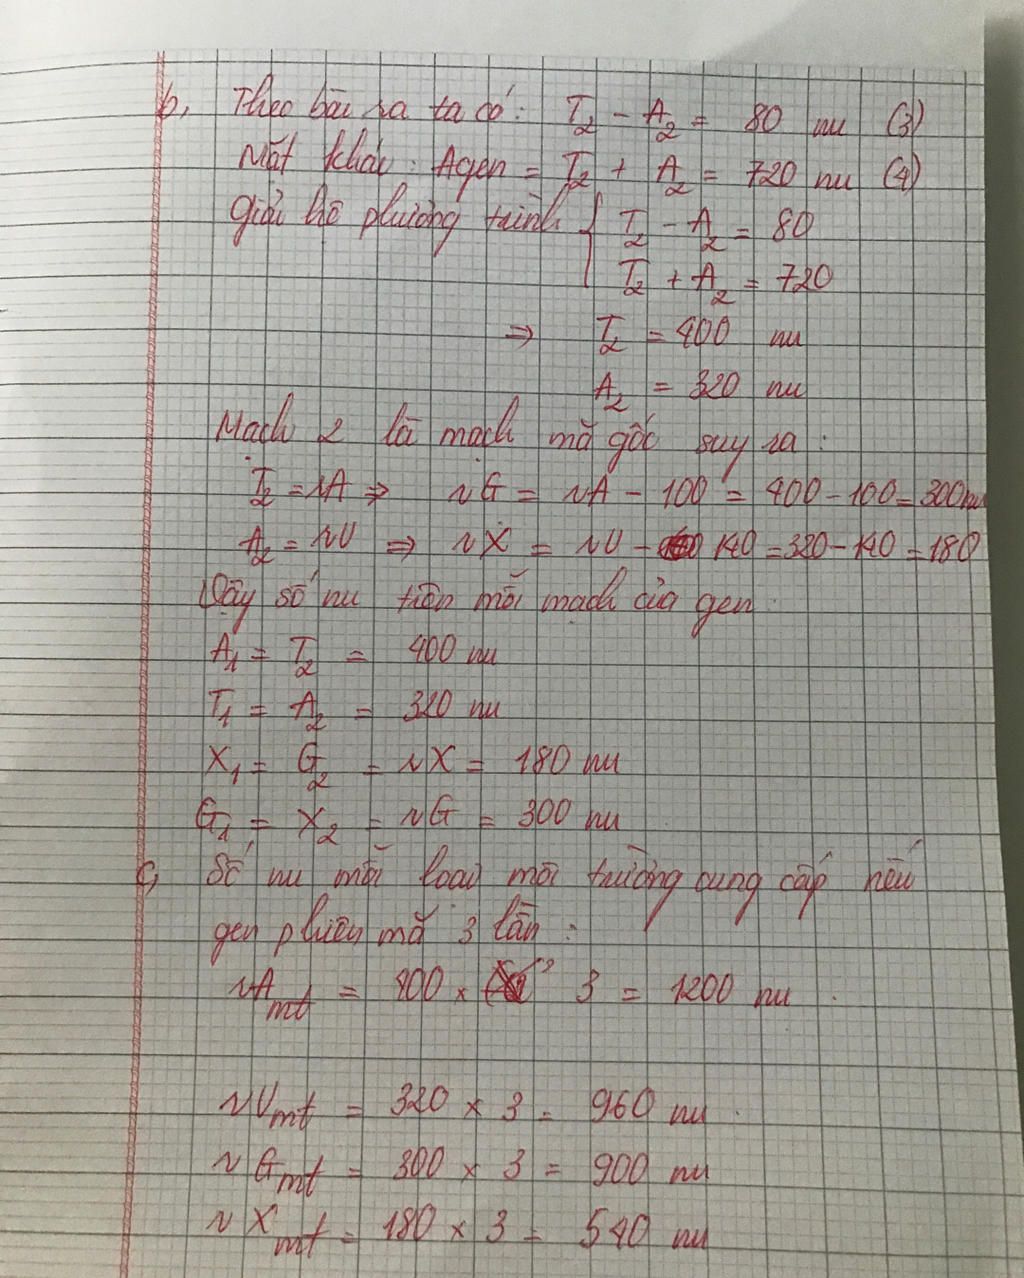 b, Theo bài ra ta có: T2 - A2 = 80 nu (3)
Mặt khác: Agen = T2 + A2 = 720 nu (4)
giải hệ phương trình { T2 - A2 = 80
T2 + A2 = 720
⇒ T2 = 400 nu
A2 = 320 nu
Mạch 2 là mạch mã gốc suy ra:
T2 = rA ⇒ rG = rA - 100 = 400 - 100 = 300 nu
A2 = rU ⇒ rX = rU - 140 = 320 - 140 = 180
Vậy số nu trên mỗi mạch của gen:
A1 = T2 = 400 nu
T1 = A2 = 320 nu
X1 = G2 = rX = 180 nu
G1 = X2 = rG = 300 nu
c, Số nu mỗi loại môi trường cung cấp nếu
gen phiên mã 3 lần:
rAmt = 400 × 3 = 1200 nu.
rUmt = 320 × 3 = 960 nu.
rGmt = 300 × 3 = 900 nu
rXmt = 180 × 3 = 540 nu